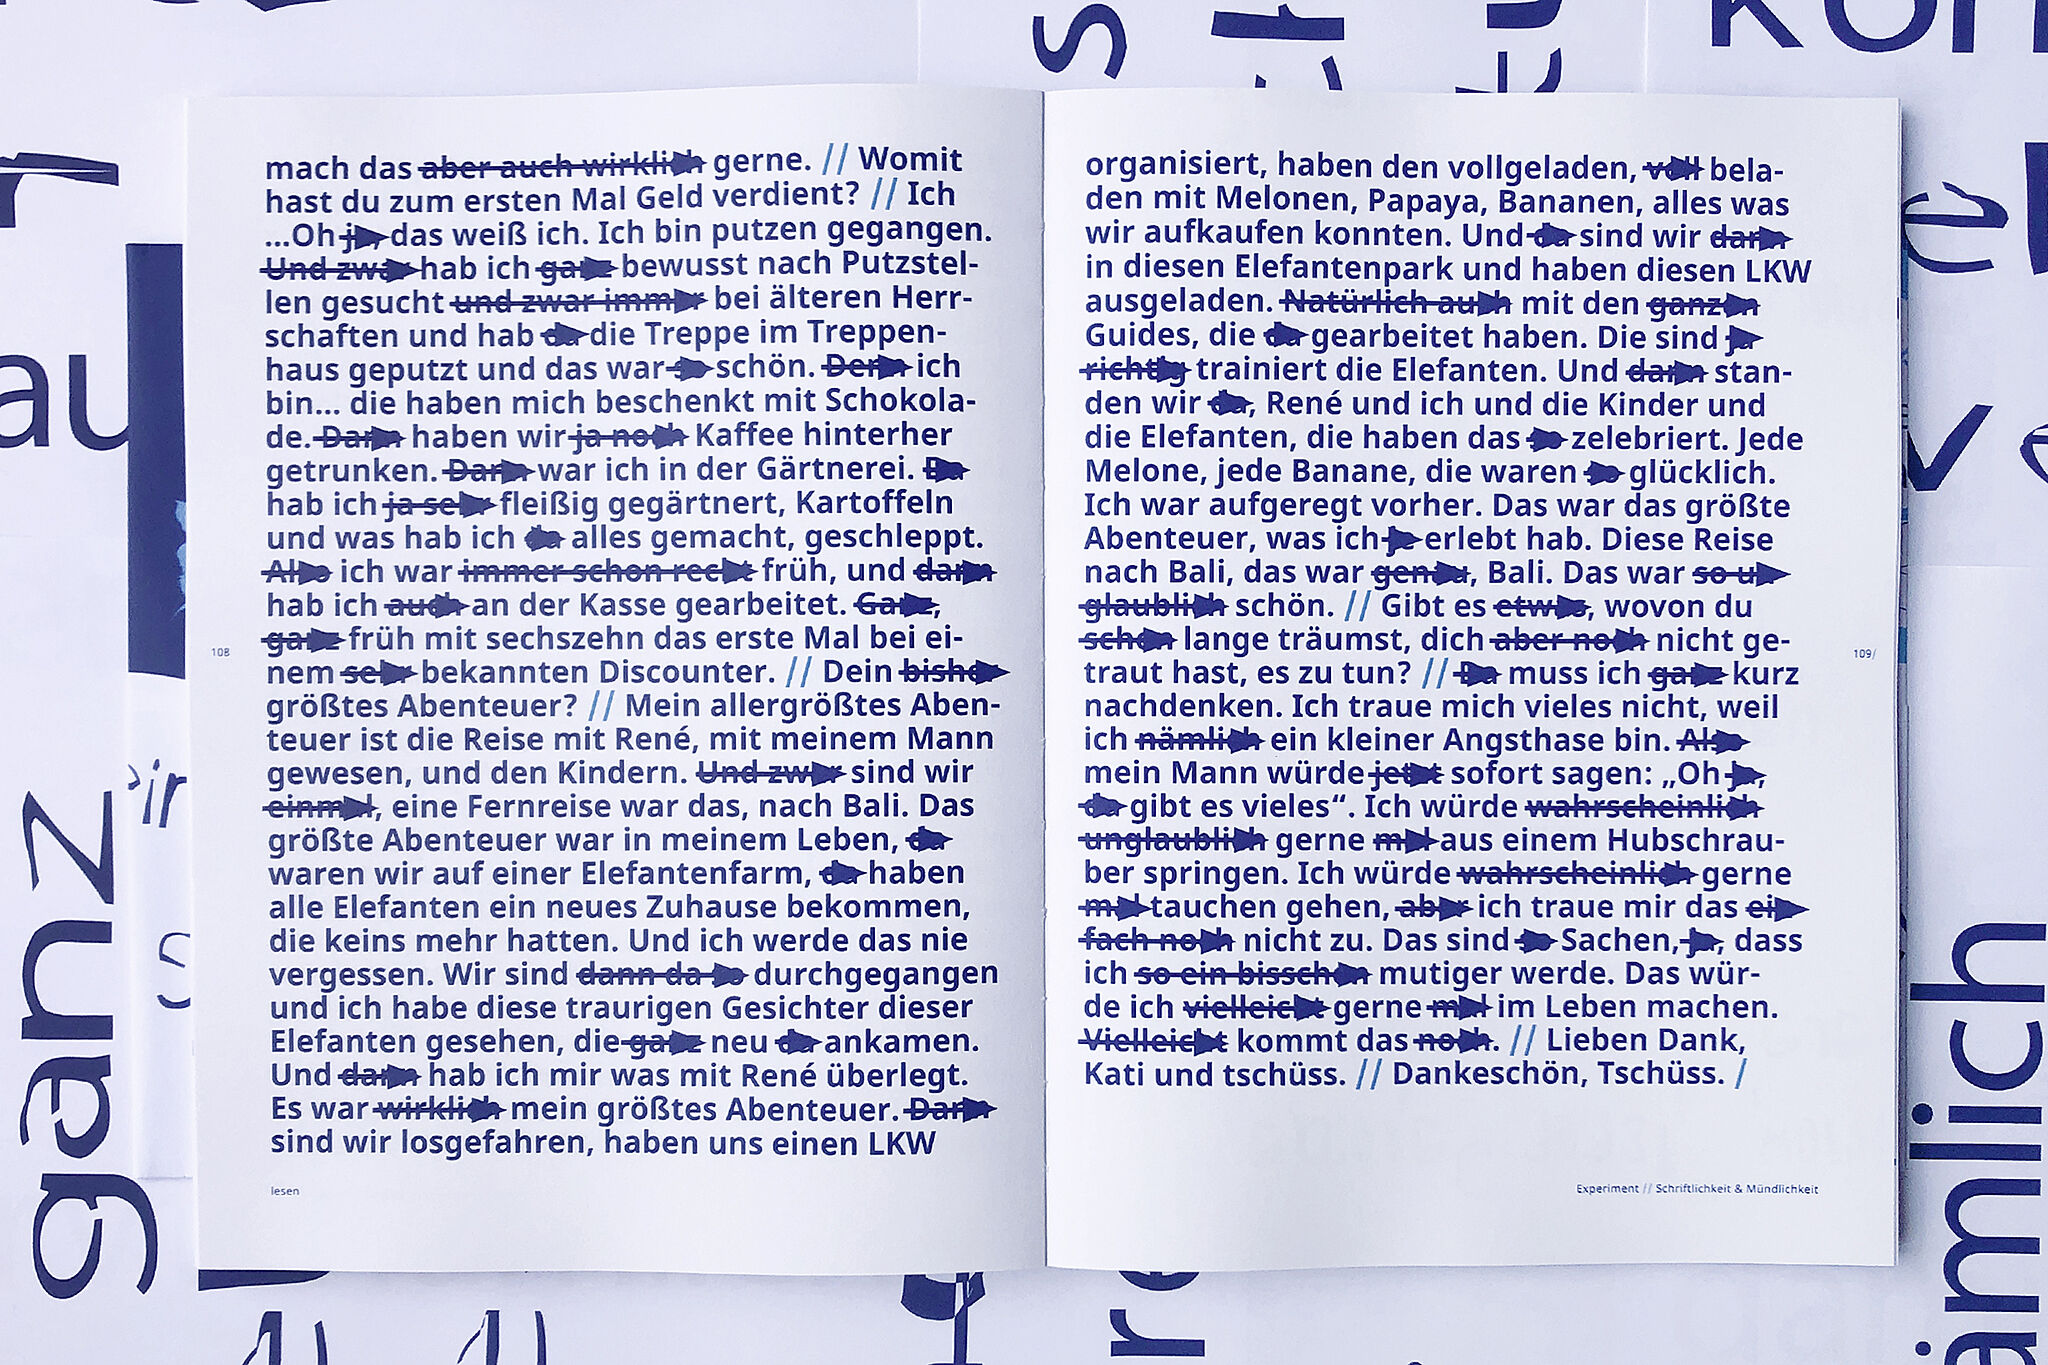 mach das aber auch wirklich gerne. // Womit
hast du zum ersten Mal Geld verdient? // Ich
...Oh ja, das weiß ich. Ich bin putzen gegangen.
Und zwar hab ich ganz bewusst nach Putzstel-
len gesucht und zwar immer bei älteren Herr-
schaften und hab da die Treppe im Treppen-
haus geputzt und das war so schön. Denn ich
bin... die haben mich beschenkt mit Schokola-
de. Dann haben wir ja noch Kaffee hinterher
getrunken. Dann war ich in der Gärtnerei. Da
hab ich ja sehr fleißig gegärtnert, Kartoffeln
und was hab ich da alles gemacht, geschleppt.
Also ich war immer schon recht früh, und dann
hab ich auch an der Kasse gearbeitet. Ganz,
ganz früh mit sechszehn das erste Mal bei ei-
nem sehr bekannten Discounter. // Dein bisher
größtes Abenteuer? // Mein allergrößtes Aben-
teuer ist die Reise mit René, mit meinem Mann
gewesen, und den Kindern. Und zwar sind wir
einmal, eine Fernreise war das, nach Bali. Das
größte Abenteuer war in meinem Leben, da
waren wir auf einer Elefantenfarm, da haben
alle Elefanten ein neues Zuhause bekommen,
die keins mehr hatten. Und ich werde das nie
vergessen. Wir sind dann da so durchgegangen
und ich habe diese traurigen Gesichter dieser
Elefanten gesehen, die ganz neu da ankamen.
Und dann hab ich mir was mit René überlegt.
Es war wirklich mein größtes Abenteuer. Dann
sind wir losgefahren, haben uns einen LKW
108
lesen
organisiert, haben den vollgeladen, voll bela-
den mit Melonen, Papaya, Bananen, alles was
wir aufkaufen konnten. Und da sind wir dann
in diesen Elefantenpark und haben diesen LKW
ausgeladen. Natürlich auch mit den ganzen
Guides, die da gearbeitet haben. Die sind ja
richtig trainiert die Elefanten. Und dann stan-
den wir da, René und ich und die Kinder und
die Elefanten, die haben das so zelebriert. Jede
Melone, jede Banane, die waren so glücklich.
Ich war aufgeregt vorher. Das war das größte
Abenteuer, was ich je erlebt hab. Diese Reise
nach Bali, das war genau, Bali. Das war so un-
glaublich schön. // Gibt es etwas, wovon du
schon lange träumst, dich aber noch nicht ge-
traut hast, es zu tun? // Da muss ich ganz kurz
nachdenken. Ich traue mich vieles nicht, weil
ich nämlich ein kleiner Angsthase bin. Also
mein Mann würde jetzt sofort sagen: „Oh ja,
da gibt es vieles“. Ich würde wahrscheinlich
unglaublich gerne mal aus einem Hubschrau-
ber springen. Ich würde wahrscheinlich gerne
mal tauchen gehen, aber ich traue mir das ein-
fach noch nicht zu. Das sind so Sachen, ja, dass
ich so ein bisschen mutiger werde. Das wür-
de ich vielleicht gerne mal im Leben machen.
Vielleicht kommt das noch. // Lieben Dank,
Kati und tschüss. // Dankeschön, Tschüss. /
109/
Experiment // Schriftlichkeit & Mündlichkeit
au
ganz